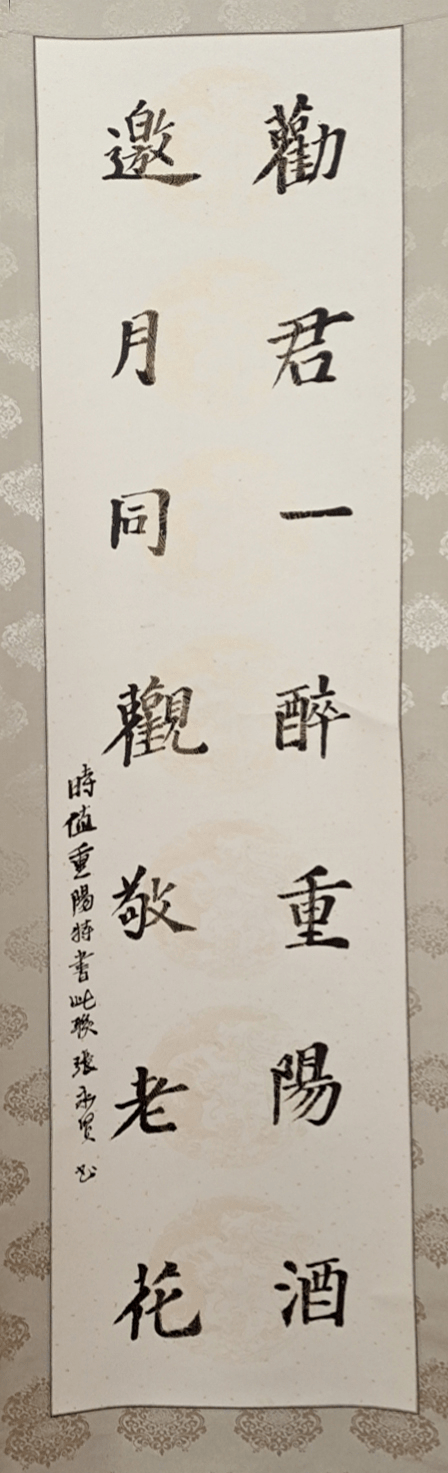 勸君一醉重陽酒
邀月同觀敬老花
時值重陽特書此聯張永賢書